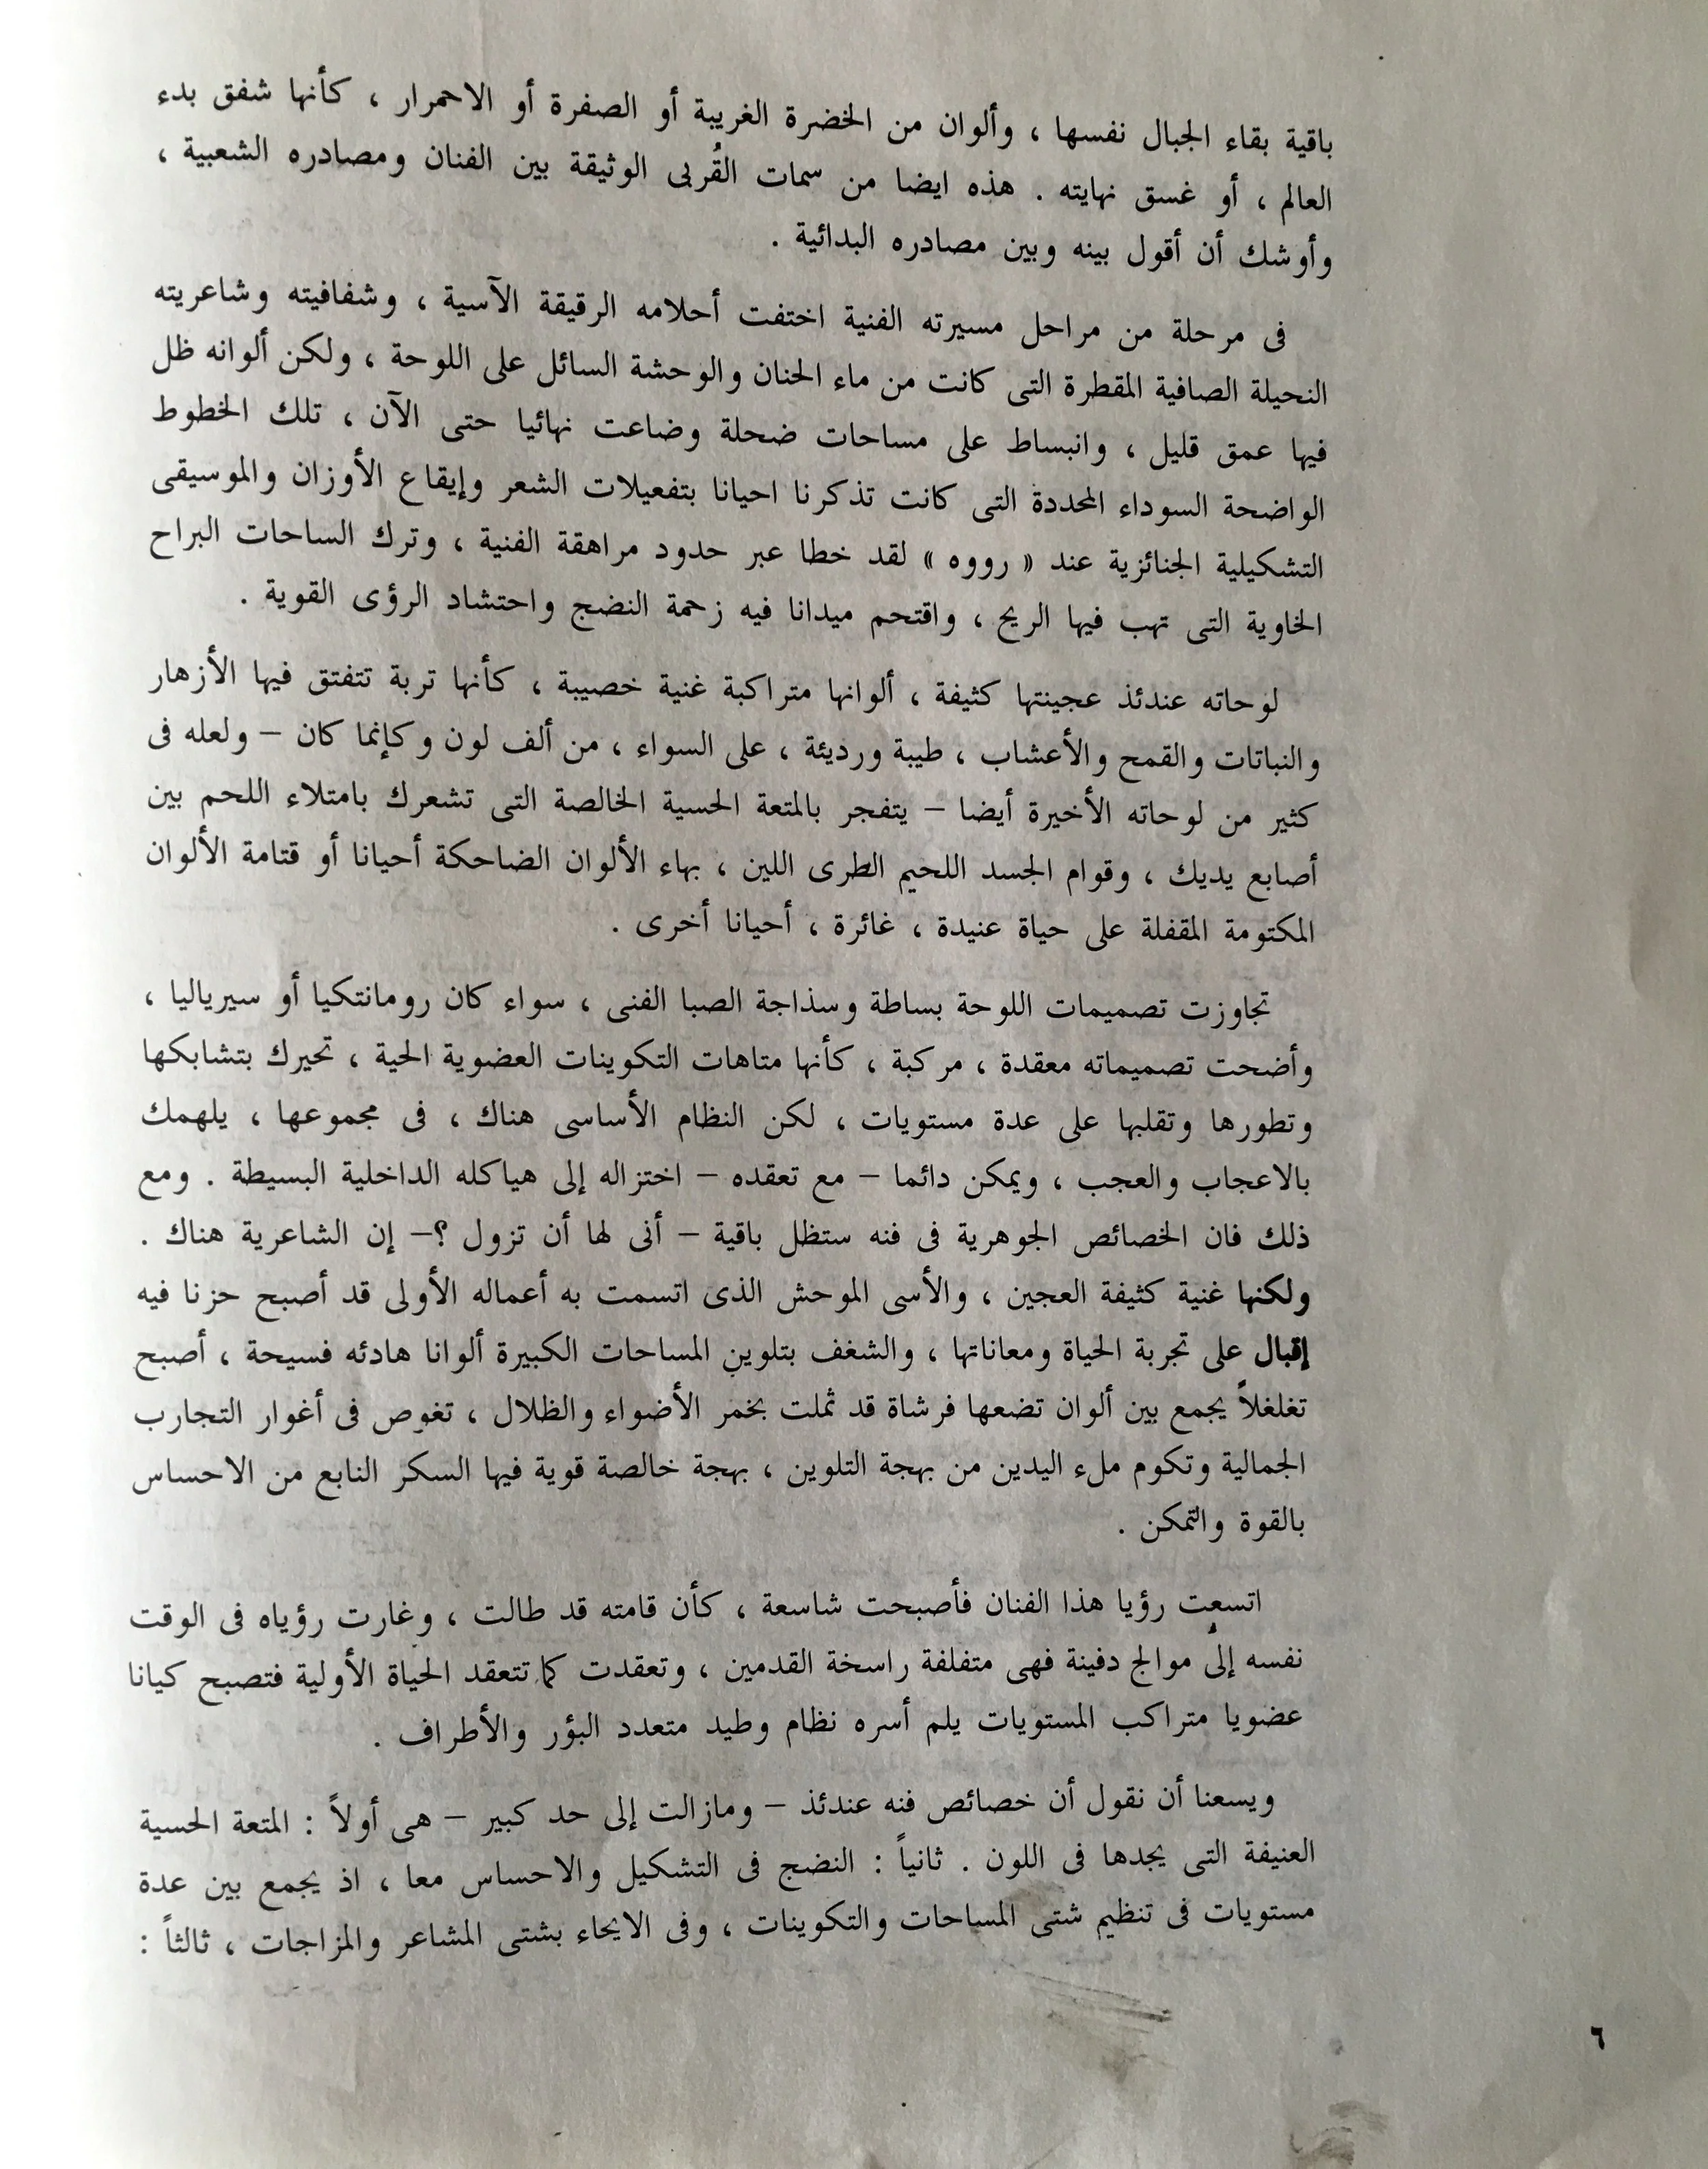 باقية بقاء الجبال نفسها ، وألوان من الخضرة الغريبة أو الصفرة أو الاحمرار ، كأنها شفق بدء
العالم ، أو غسق نهايته . هذه ايضا من سمات القُربى الوثيقة بين الفنان ومصادره الشعبية ،
وأوشك أن أقول بينه وبين مصادره البدائية .
فى مرحلة من مراحل مسيرته الفنية اختفت أحلامه الرقيقة الآسية ، وشفافيته وشاعريته
النحيلة الصافية المقطرة التى كانت من ماء الحنان والوحشة السائل على اللوحة ، ولكن ألوانه ظل
فيها عمق قليل ، وانبساط على مساحات ضحلة وضاعت نهائيا حتى الآن ، تلك الخطوط
الواضحة السوداء المحددة التى كانت تذكرنا احيانا بتفعيلات الشعر وإيقاع الأوزان والموسيقى
التشكيلية الجنائزية عند « رووه » لقد خطا عبر حدود مراهقة الفنية ، وترك الساحات البراح
الخاوية التى تهب فيها الريح ، واقتحم ميدانا فيه زحمة النضج واحتشاد الرؤى القوية .
لوحاته عندئذ عجينتها كثيفة ، ألوانها متراكبة غنية خصيبة ، كأنها تربة تتفتق فيها الأزهار
والنباتات والقمح والأعشاب ، طيبة ورديئة ، على السواء ، من ألف لون وكإنما كان – ولعله فى
كثير من لوحاته الأخيرة أيضا – يتفجر بالمتعة الحسية الخالصة التى تشعرك بامتلاء اللحم بين
أصابع يديك ، وقوام الجسد اللحيم الطرى اللين ، بهاء الألوان الضاحكة أحيانا أو قتامة الألوان
المكتومة المقفلة على حياة عنيدة ، غائرة ، أحيانا أخرى .
تجاوزت تصميمات اللوحة بساطة وسذاجة الصبا الفنى ، سواء كان رومانتكيا أو سيرياليا ،
وأضحت تصميماته معقدة ، مركبة ، كأنها متاهات التكوينات العضوية الحية ، تحيرك بتشابكها
وتطورها وتقلبها على عدة مستويات ، لكن النظام الأساسى هناك ، فى مجموعها ، يلهمك
بالاعجاب والعجب ، ويمكن دائما – مع تعقده – اختزاله إلى هياكله الداخلية البسيطة . ومع
ذلك فان الخصائص الجوهرية فى فنه ستظل باقية – أنى لها أن تزول ؟– إن الشاعرية هناك .
ولكنها غنية كثيفة العجين ، والأسى الموحش الذى اتسمت به أعماله الأولى قد أصبح حزنا فيه
إقبال على تجربة الحياة ومعاناتها ، والشغف بتلوين المساحات الكبيرة ألوانا هادئه فسيحة ، أصبح
تغلغلاً يجمع بين ألوان تضعها فرشاة قد ثملت بخمر الأضواء والظلال ، تغوص فى أغوار التجارب
الجمالية وتكوم ملء اليدين من بهجة التلوين ، بهجة خالصة قوية فيها السكر النابع من الاحساس
بالقوة والتمكن .
اتسعت رؤيا هذا الفنان فأصبحت شاسعة ، كأن قامته قد طالت ، وغارت رؤياه فى الوقت
نفسه إلى موالج دفينة فهى متفلفة راسخة القدمين ، وتعقدت كما تتعقد الحياة الأولية فتصبح كيانا
عضويا متراكب المستويات يلم أسره نظام وطيد متعدد البؤر والأطراف .
ويسعنا أن نقول أن خصائص فنه عندئذ – ومازالت إلى حد كبير – هى أولاً : المتعة الحسية
العنيفة التى يجدها فى اللون . ثانياً : النضج فى التشكيل والاحساس معا ، اذ يجمع بين عدة
مستويات فى تنظيم شتى المساحات والتكوينات ، وفى الايحاء بشتى المشاعر والمزاجات ، ثالثاً :
٦